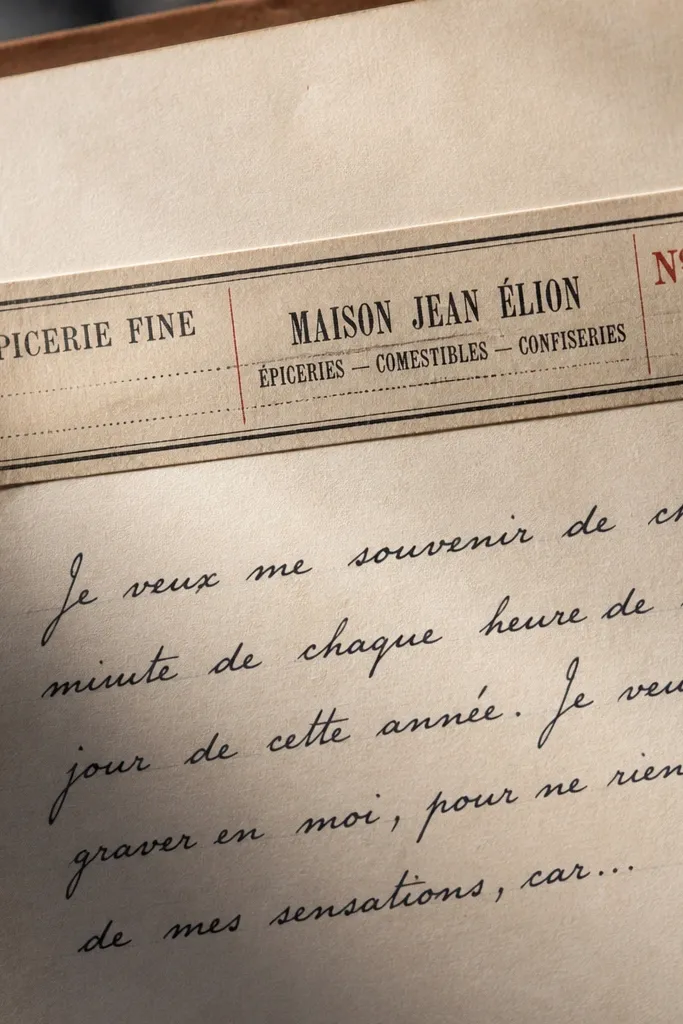 PICERIE FINE
MAISON JEAN ÉLION
ÉPICERIES — COMESTIBLES — CONFISERIES
Nº
Je veux me souvenir de ch
minute de chaque heure de
jour de cette année. Je veu
graver en moi, pour ne rien
de mes sensations, car...